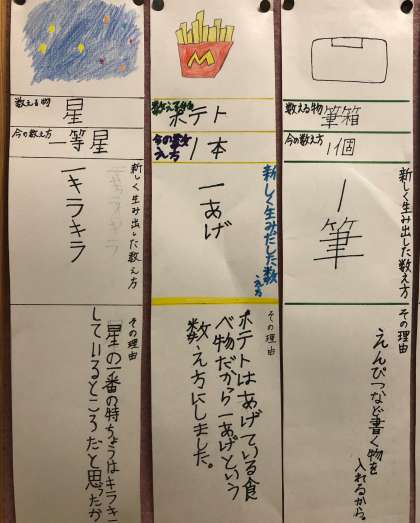 数える物 星
今の数え方 一等星
新しく生み出した数え方
一キラキラ
その理由
星の一番の特ちょうはキラキ
しているところだと思ったか
M
数える物 ポテト
今の数え方 1本
新しく生みだした数え方
一あげ
その理由
ポテトはあげている食
べ物だから一あげという
数え方にしました。
数える物 筆箱
今の数え方 1個
新しく生み出した数え方
1筆
その理由
えんぴつなど書く物を
入れるから。